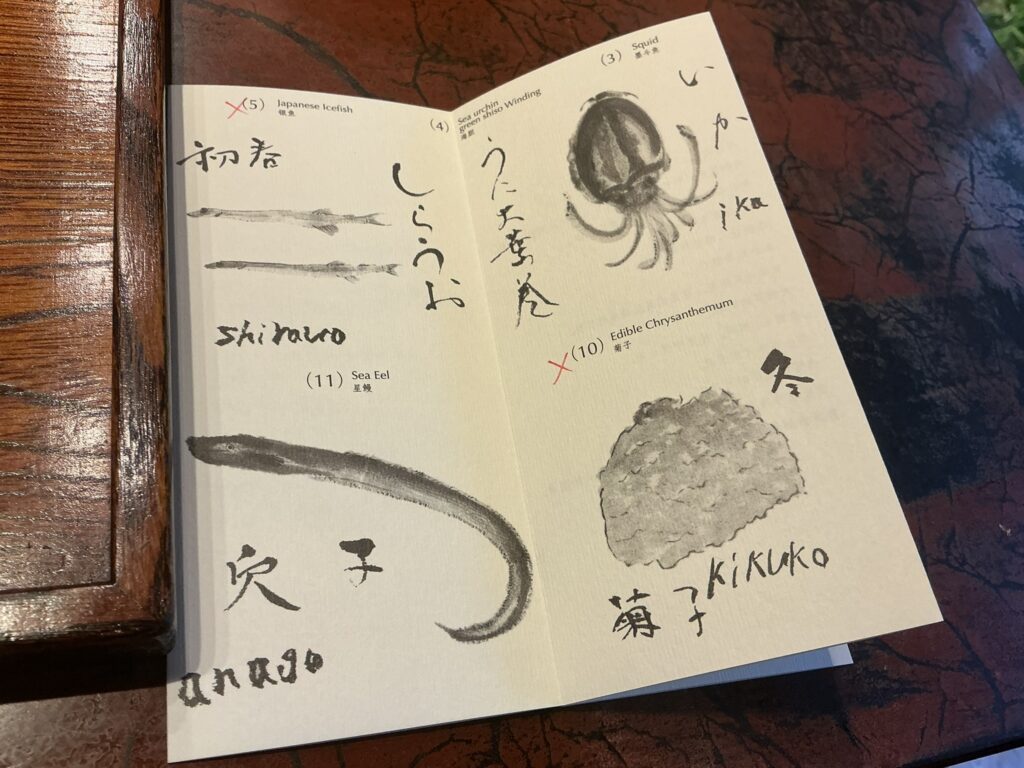 (5) Japanese Icefish
银鱼
初春
しらうお
shirauo
(11) Sea Eel
星鳗
穴子
anago
(4) Sea urchin
green shiso Winding
海胆
うに大葉巻
(3) Squid
墨斗鱼
いか
ika
(10) Edible Chrysanthemum
菊子
冬
菊子
kikuko